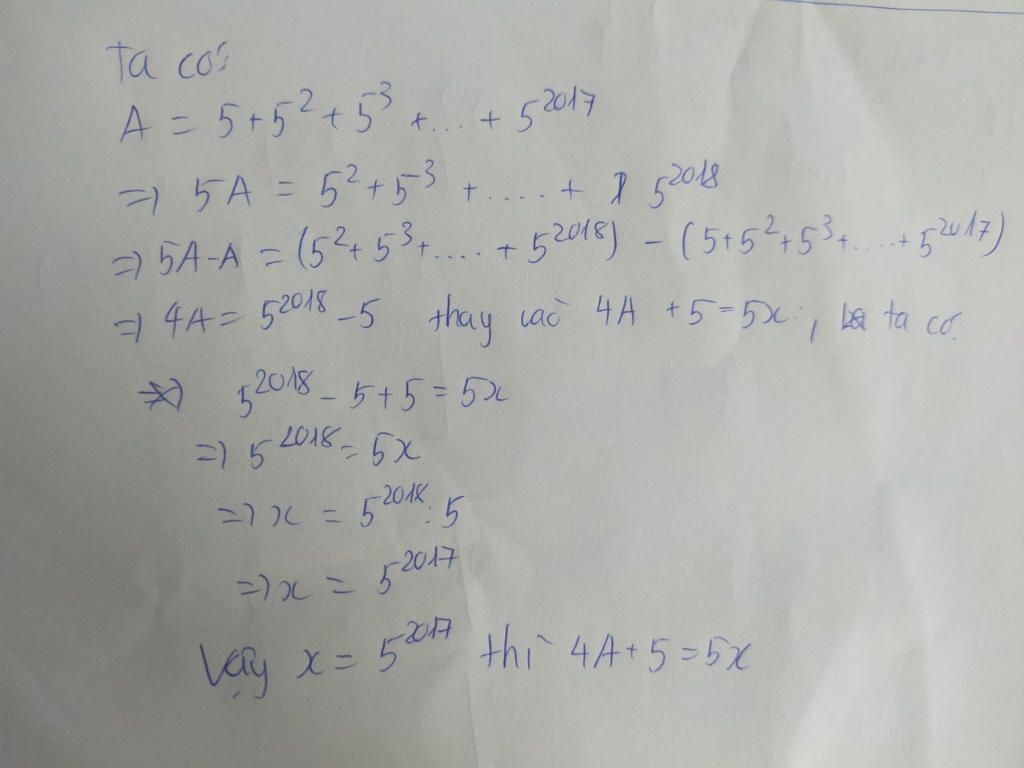 Ta có:
A = 5 + 5² + 5³ + ... + 5²⁰¹⁷
=> 5A = 5² + 5³ + .... + 5²⁰¹⁸
=> 5A - A = (5² + 5³ + .... + 5²⁰¹⁸) - (5 + 5² + 5³ + .... + 5²⁰¹⁷)
=> 4A = 5²⁰¹⁸ - 5 thay vào 4A + 5 = 5x, ta có.
5²⁰¹⁸ - 5 + 5 = 5x
=> 5²⁰¹⁸ = 5x
=> x = 5²⁰¹⁸ : 5
=> x = 5²⁰¹⁷
Vậy x = 5²⁰¹⁷ thì 4A + 5 = 5x